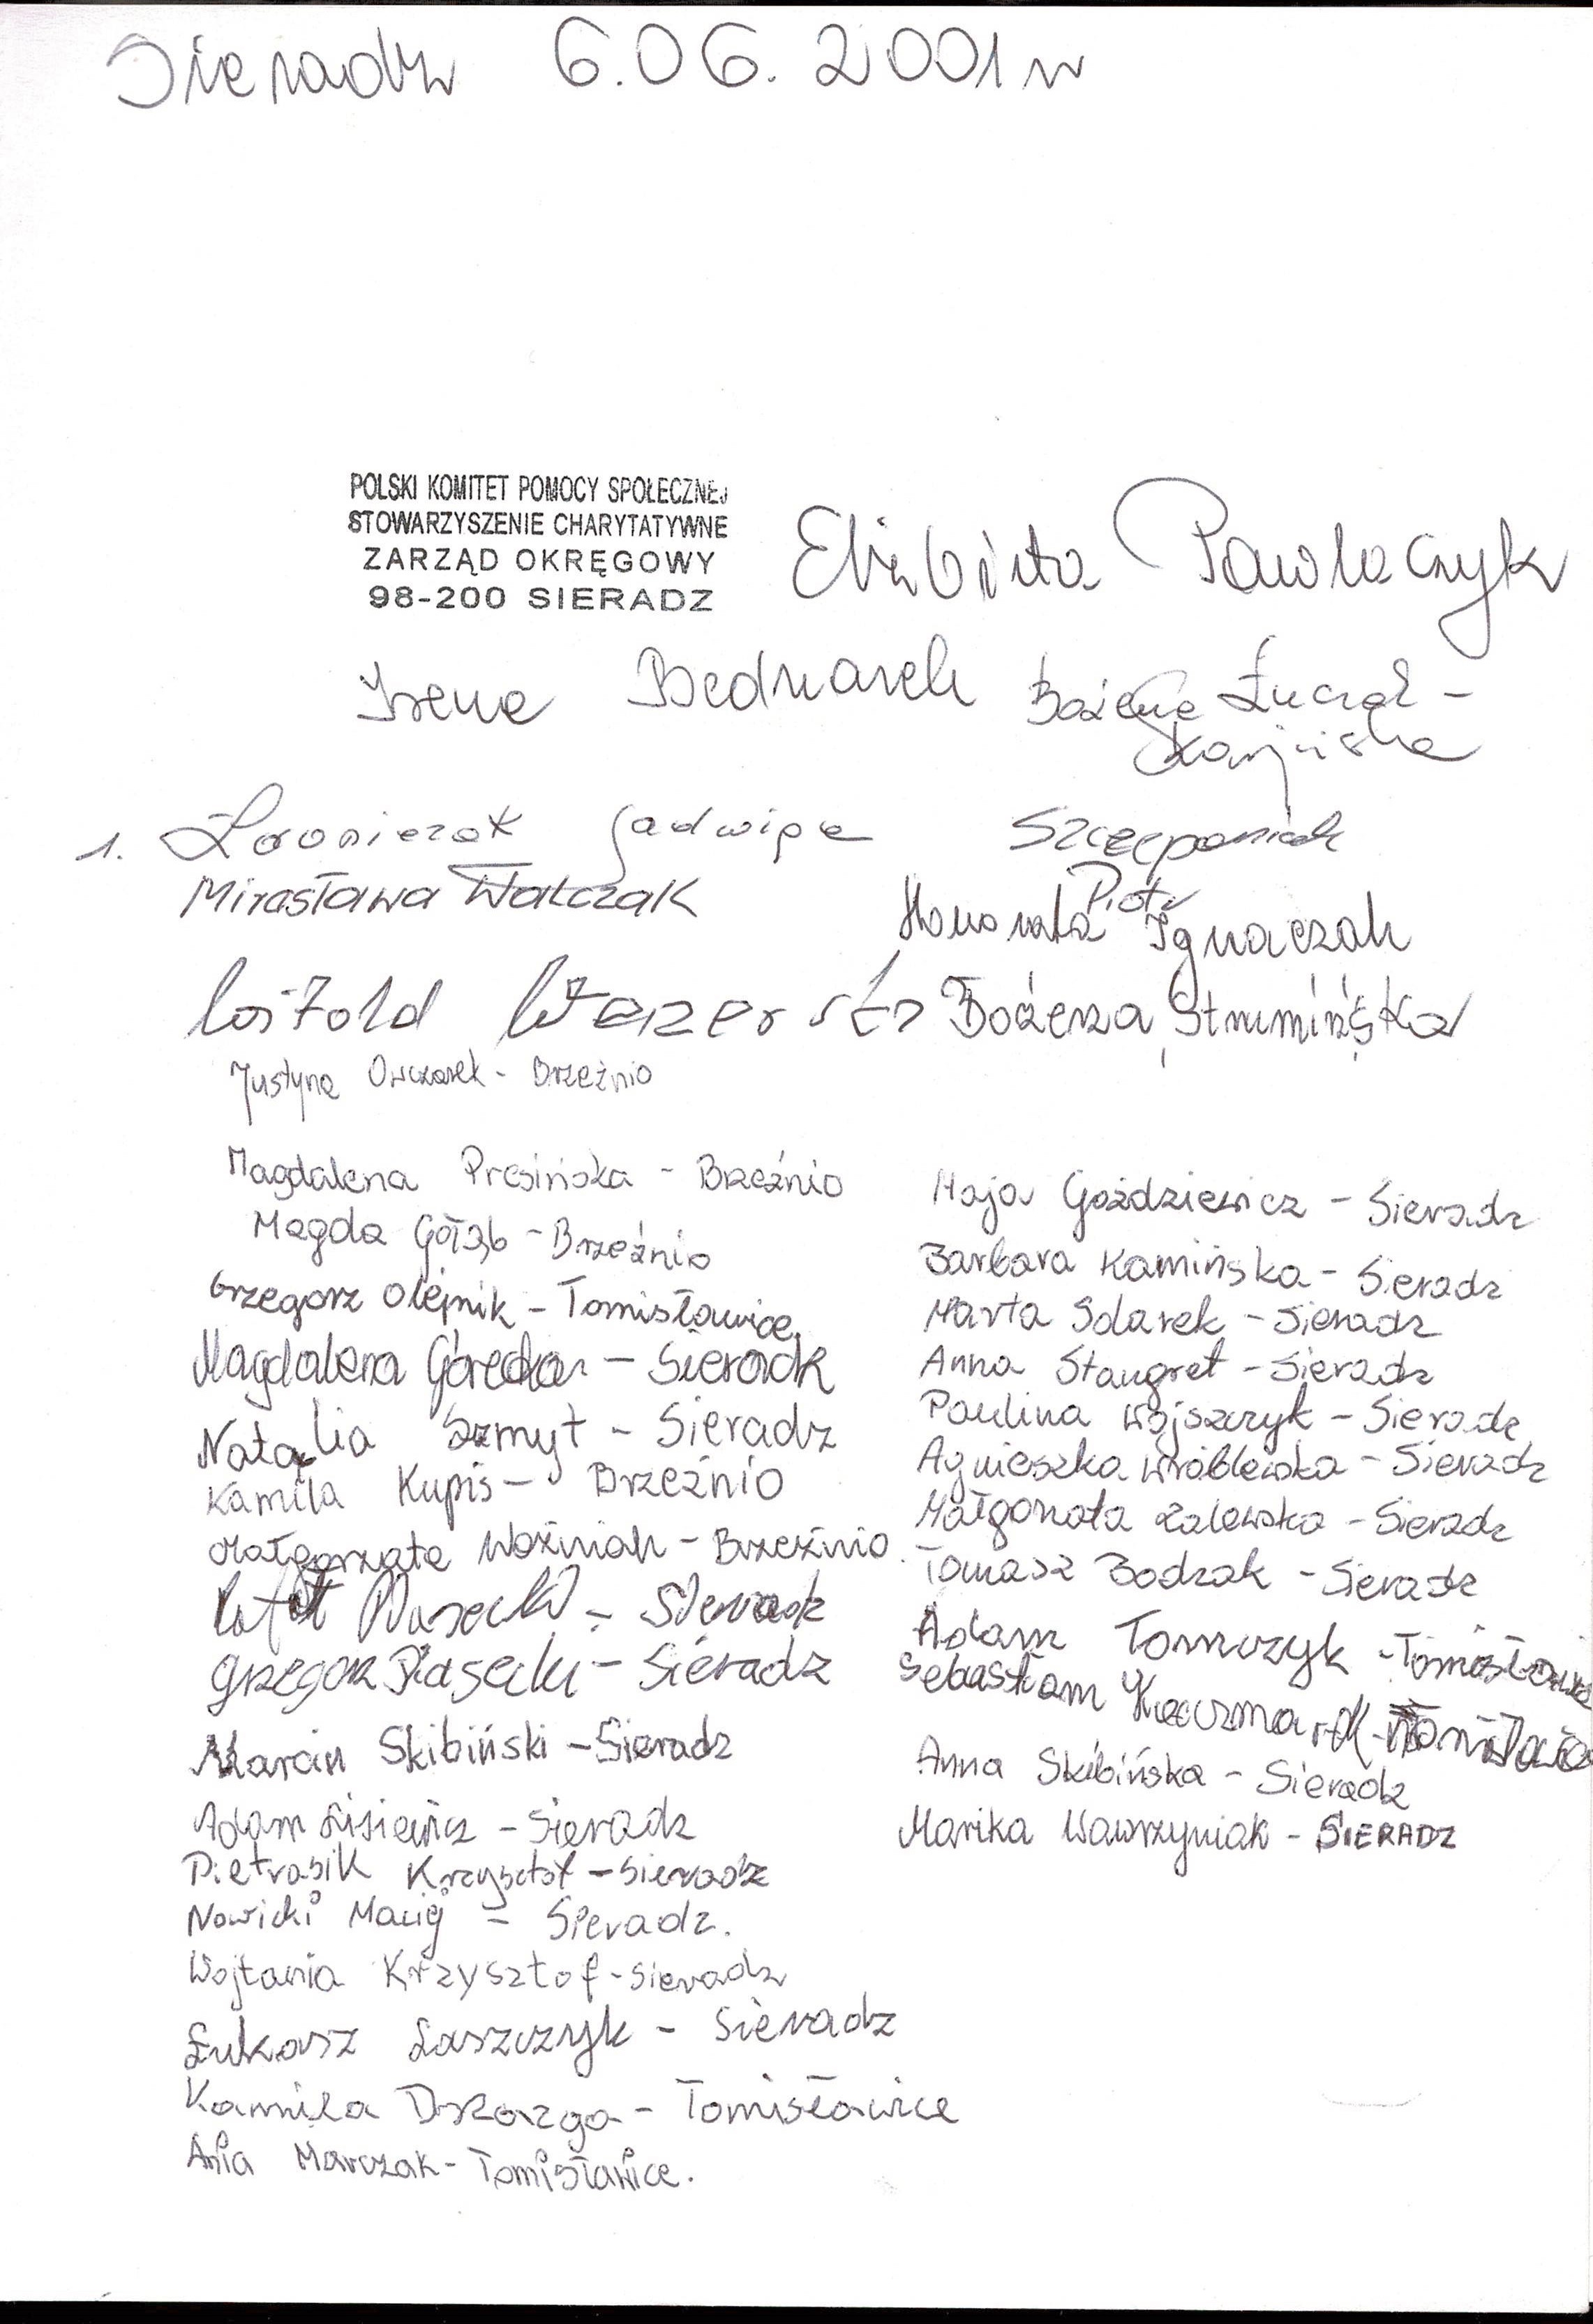 Sieradz 6.06.2001 r
POLSKI KOMITET POMOCY SPOŁECZNEJ
STOWARZYSZENIE CHARYTATYWNE
ZARZĄD OKRĘGOWY
98-200 SIERADZ
Elżbieta Pawlaczyk
Irena Bednarek
Bożena Łuczak -
1. Jadwiga
Mirosława Walczak
Szczepaniak
Piotr
Honorata Ignaczak
Witold
Bożena Strumińska
Justyna Owczarek - Brzeźnio
Magdalena Presińska - Brzeźnio
Magda Gołąb - Brzeźnio
Grzegorz Olejnik - Tomisławice
Magdalena Górecka - Sieradz
Natalia Szmyt - Sieradz
Kamila Kupis - Brzeźnio
Małgorzata Woźniak - Brzeźnio.
Rafał - Sieradz
Grzegorz Piasecki - Sieradz
Marcin Skibiński - Sieradz
Adam Lisiewicz - Sieradz
Pietrasik Krzysztof - Sieradz
Nowicki Maciej - Sieradz.
Wojtania Krzysztof - Sieradz
Łukasz Łaszczyk - Sieradz
Kamila Drzazga - Tomisławice
Ania Marczak - Tomisławice.
Maja Goździewicz - Sieradz
Barbara Kamińska - Sieradz
Marta Solarek - Sieradz
Anna Staugret - Sieradz
Paulina Wojszczyk - Sieradz
Agnieszka Wróblewska - Sieradz
Małgorzata Zalewska - Sieradz
Tomasz Bodzak - Sieradz
Adam Tomczyk - Tomisławice
Sebastian Kaczmarek - Tomisławice
Anna Skibińska - Sieradz
Marika Wawrzyniak - SIERADZ